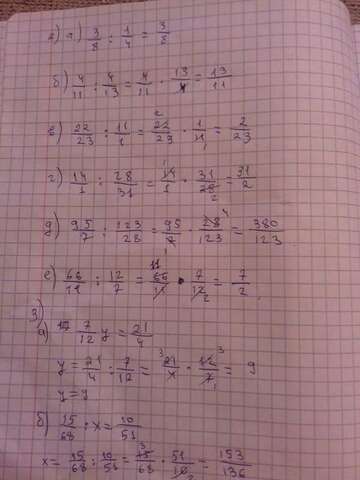 2) а) 3/8 : 1/4 = 3/8
б) 4/11 : 4/13 = 4/11 · 13/4 = 13/11
в) 22/23 : 11/1 = 22/23 · 1/11 = 2/23
г) 14/1 : 28/31 = 14/1 · 31/28 = 31/2
д) 95/7 : 123/28 = 95/7 · 28/123 = 380/123
е) 66/11 : 12/7 = 66/11 · 7/12 = 7/2
3)
а) 7/12 y = 21/4
y = 21/4 : 7/12 = 21/4 · 12/7 = 9
y = 9
б) 15/68 : x = 10/51
x = 15/68 : 10/51 = 15/68 · 51/10 = 153/136